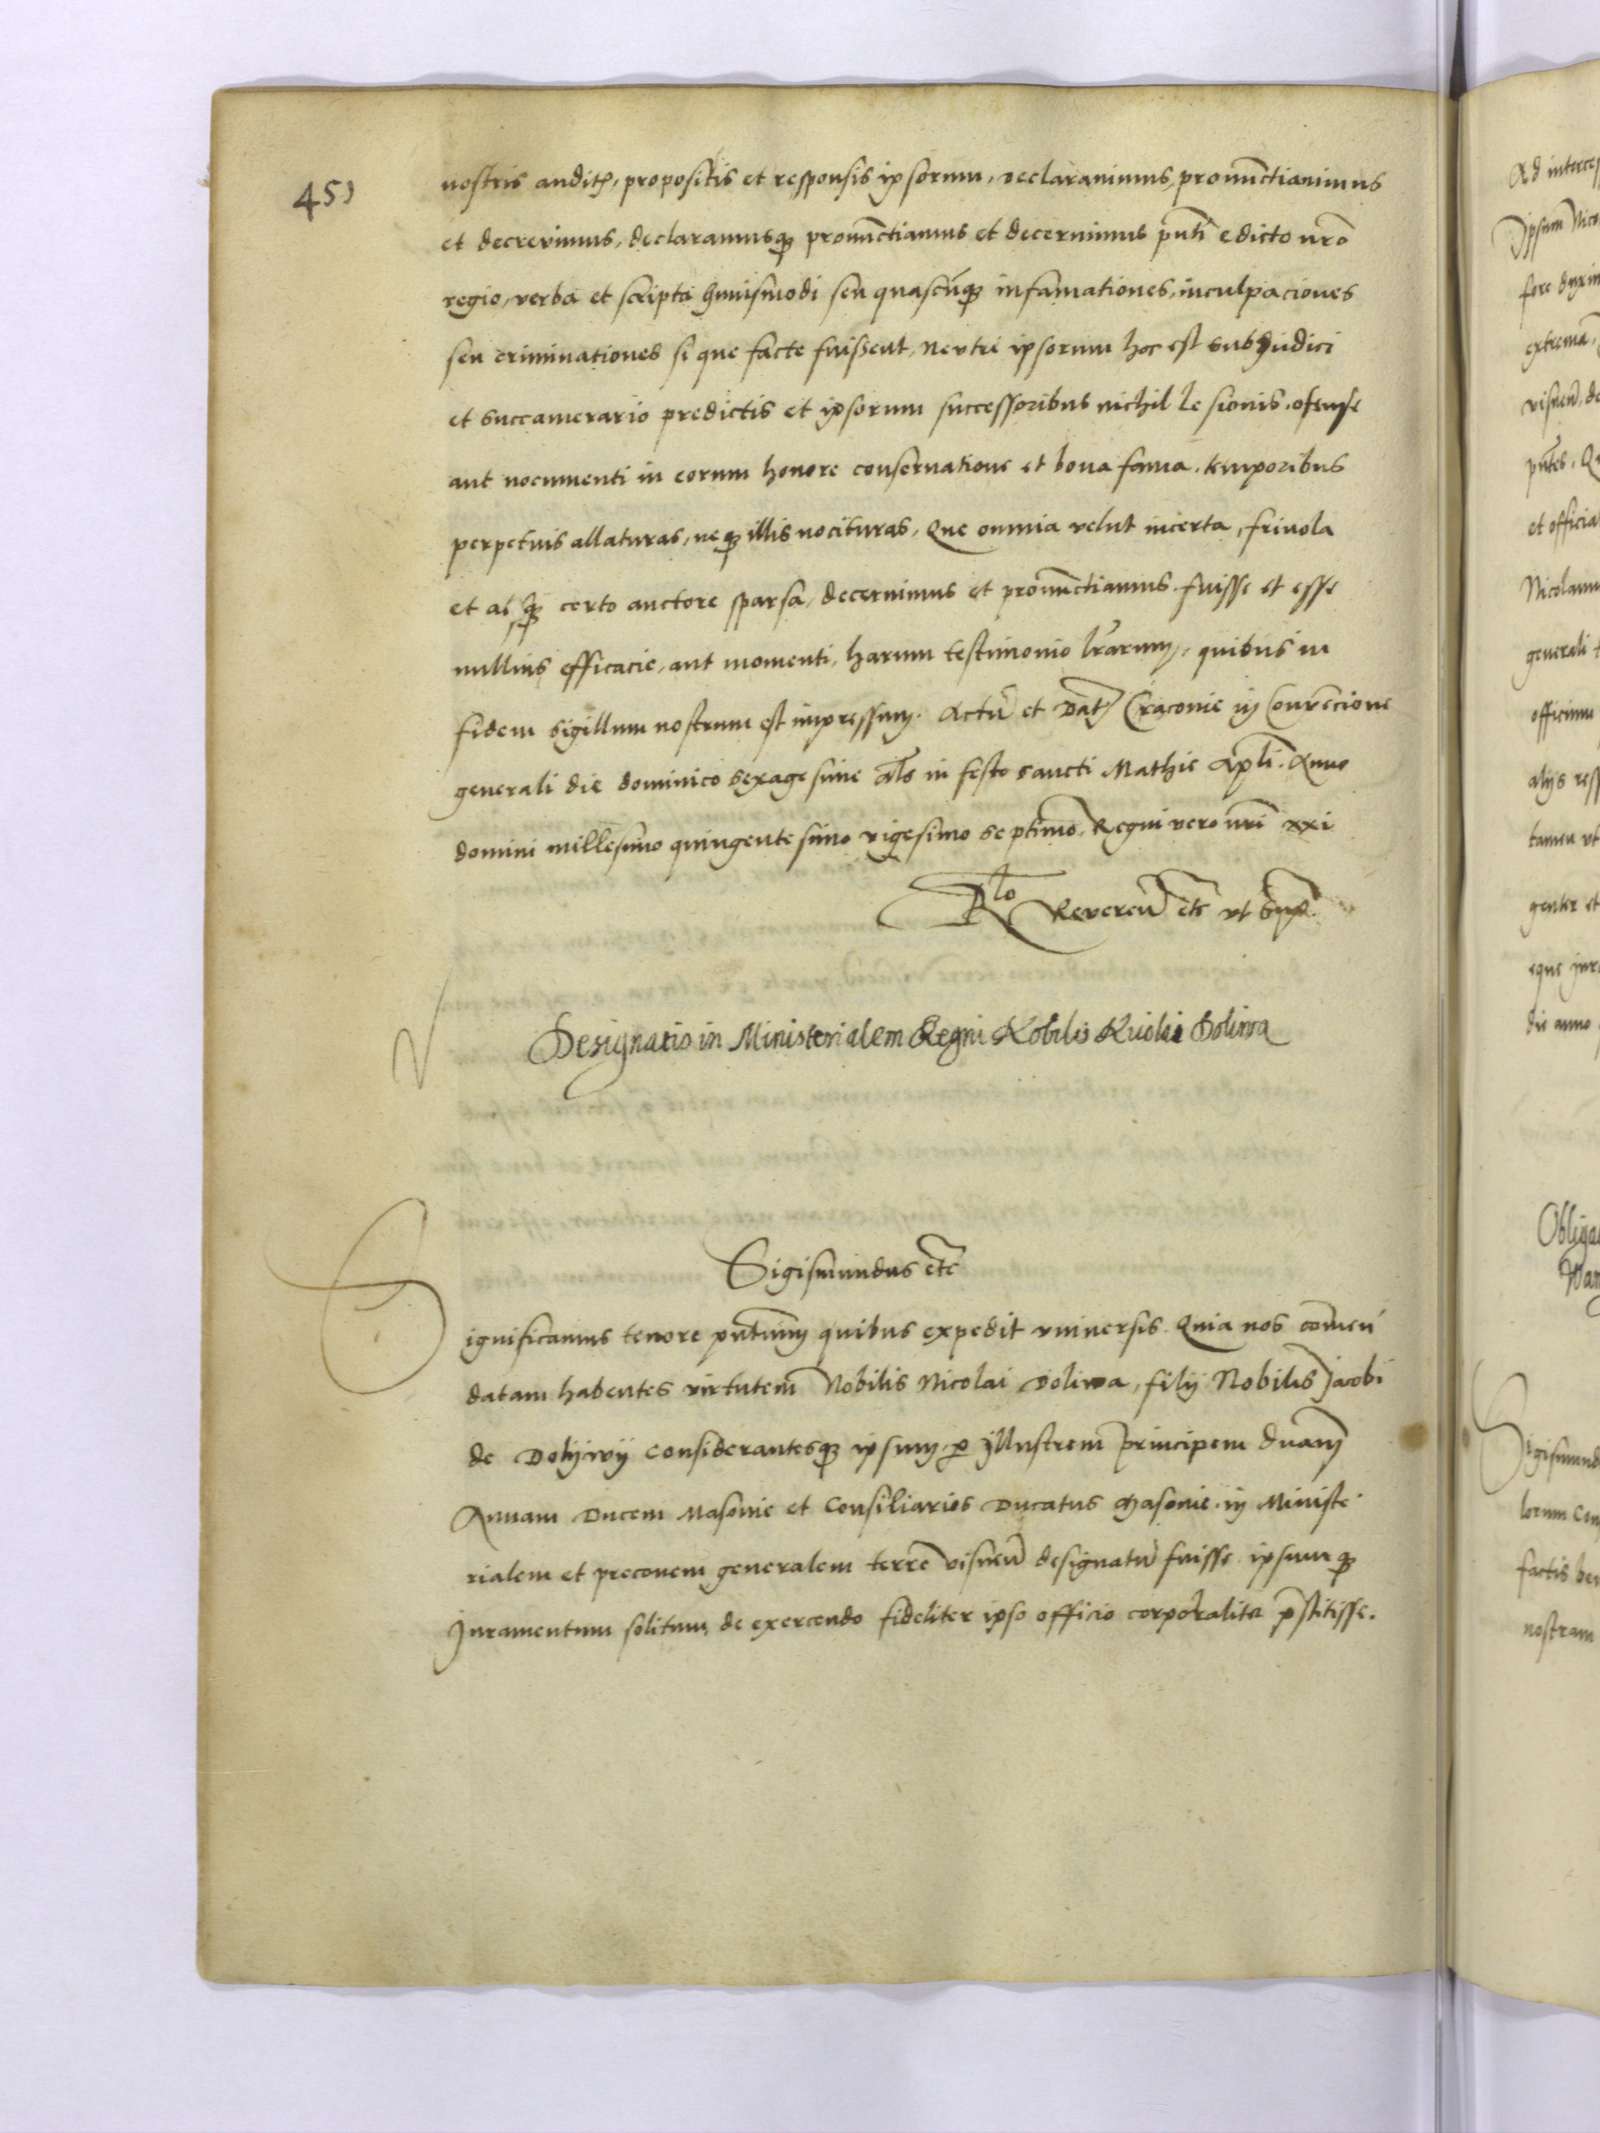 451
nostris auditis, propositis et responsis ipsorum, declaravimus, pronunctiavimus
et decrevimus, declaramusq; pronunctiamus et decernimus pnti edicto nro
regio, verba et scripta huiusmodi seu quascunq; infamationes, inculpaciones
seu criminationes si que facte fuissent, Neutri ipsorum hoc est subiudici
et succamerario predictis et ipsorum successoribus nichil lesionis, ofense
aut nocumenti in eorum honore conservatione et bona fama, temporibus
perpetuis allaturas, neq; illis nocituras, Que omnia velut incerta, frivola
et absq; certo auctore sparsa, decernimus et pronunctiamus fuisse et esse
nullius efficacie, aut momenti, harum testimonio lrarum, quibus in
fidem sigillum nostrum est impressum. Actu et Dat Cracovie in Convencione
generali die dominico sexagesime als in festo sancti Mathie Apli. Anno
domini millesimo quingentesimo vigesimo septimo, Regni vero nri xxi
Rlo Reveren etc ut Supra
Designatio in Ministerialem Regni Nobilis Nicolai Doliwa
Sigismundus etc
Significamus tenore pntium quibus expedit universis. Quia nos comen
datam habentes virtutem Nobilis Nicolai Doliwa, filij Nobilis Jacobi
de Dolijwij Considerantesq; ipsum p illustrem principem dnam
Annam Ducem Masovie et Consiliarios Ducatus Masovie in Ministe
rialem et preconem generalem terre visnen designatu fuisse ipsumq;
Juramentum solitum de exercendo fideliter ipso officio corporalite pstitisse.